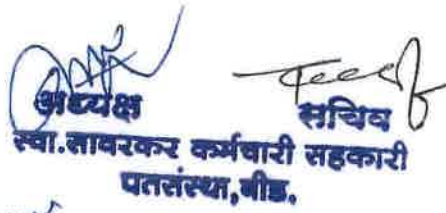 अध्यक्ष सचिव
स्वा.सावरकर कर्मचारी सहकारी
पतसंस्था,बीड.